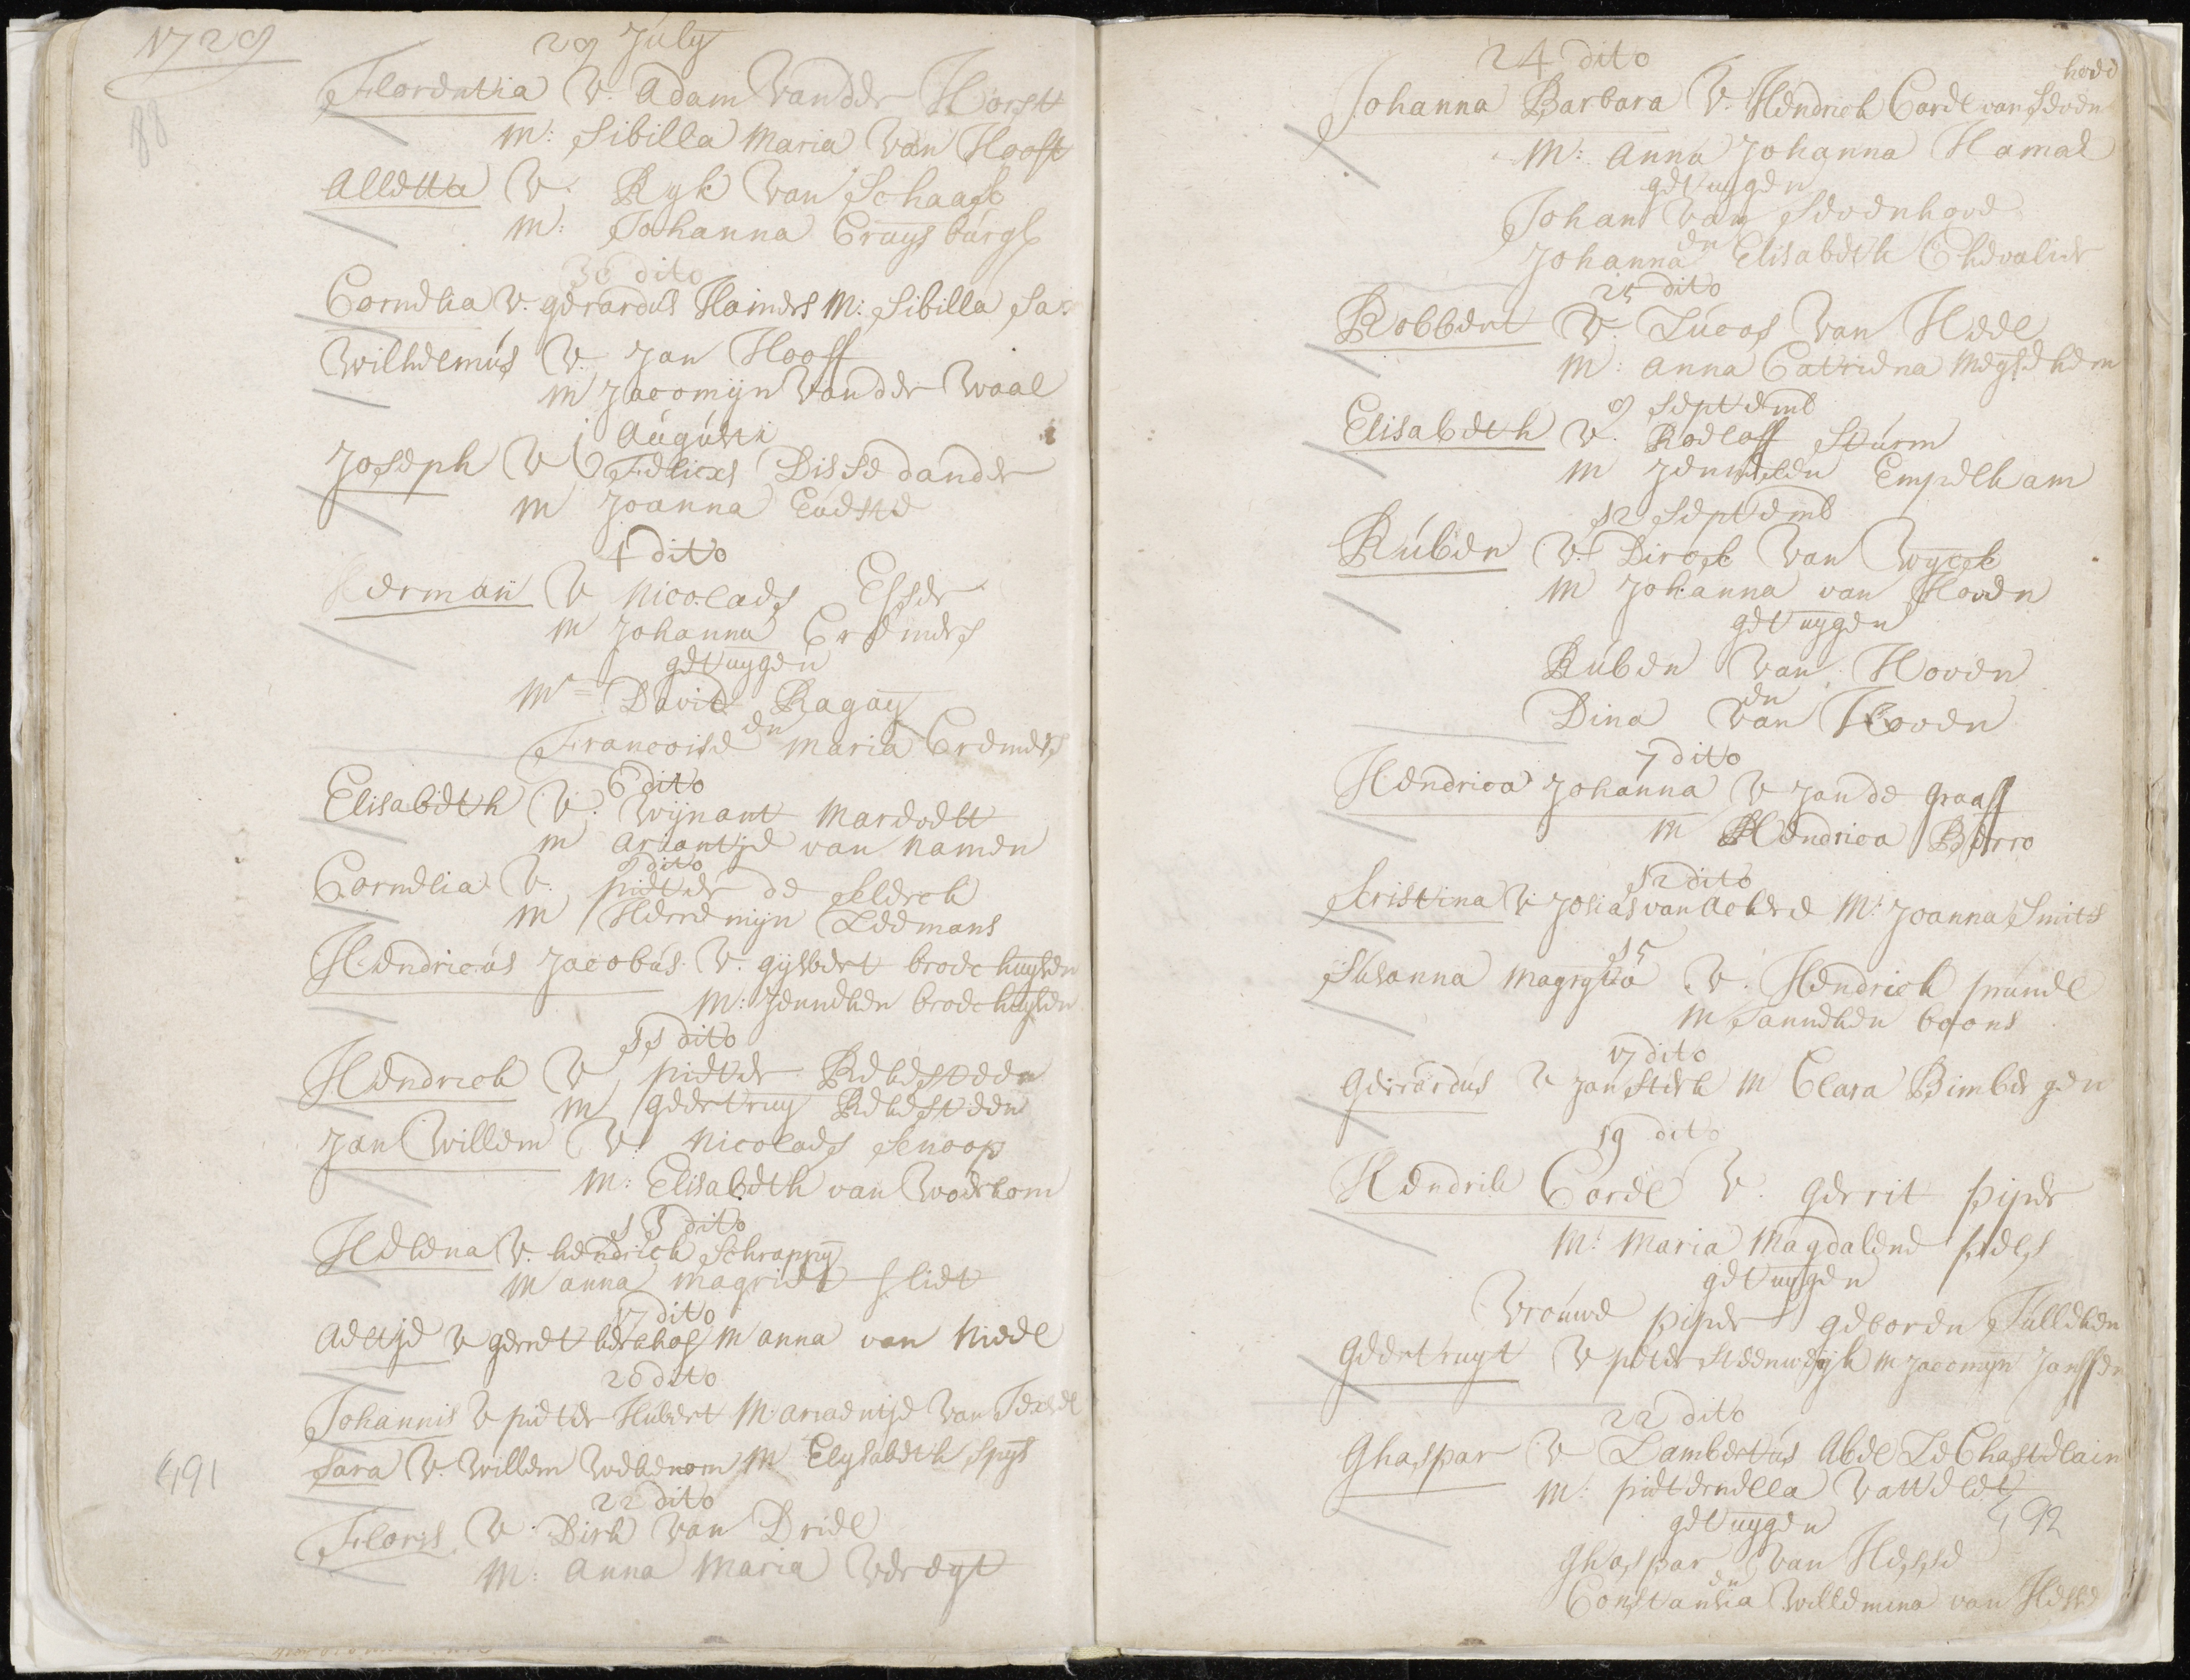 1729
29 July
88
Florentia V. Adam Vander Horst
M: Sibilla Maria Van Hooft
Alletta V. Ryk Van Schaack
M: Johanna Cruys burgh
30 dito
Cornelia V. gerardus Hainers M: Sibilla
Wilhelmus V. Jan Hooff
M Jacomijn Vander Waal
1 Augusti
Joseph V Felicxs Dissedander
M Joanna
4 dito
Herman V Nicolaes Esser
M Johanna Cremers
getuygen
Mr David Ragay
en
Francoise Maria Cremers
6 dito
Elisabeth V. Wijnant Marevelt
M Ariantje van Namen
8 dito
Cornelia V. pieter de
M Herremijn Leemans
Hendricus Jacobus V. gysbert broekhuysen
M: Jenneken broekhuysen
11 dito
Hendrick V pieter Rekesteen
M geertruy Rekesteen
Jan Willem V. Nicolaes Senoop
M: Elisabeth van Woerkom
13 dito
Helena V. hendrick Schrappy
M anna magriet Sliet
17 dito
Aeltje V gerret kerkhof M anna van Nieel
20 dito
Johannis V pieter Hubert M. ariaentje Van Texsel
Sara V. Willem M Elysabeth Spys
491
22 dito
Floris V. Dirk Van Driel
M: Anna Maria Veregt
24 dito
hove
Johanna Barbara V. Hendrick Carel van Seven
M: Anna Johanna Hamal
getuygen
Johan Van Sevenhove
en
Johanna Elisabeth Chevalier
25 dito
Robbert V. Lucas Van Heel
M: Anna Catriena
9 Septemb
Elisabeth V. Roeloff Sturm
M Jenneken Empelham
12 Septemb
Ruben V. Dirck Van Wyck
M Johanna van Hoven
getuygen
Ruben Van Hoven
en
Dina Van Hoven
7 dito
Hendrica Johanna V Jan de graaff
M Hendrica Berro
12 dito
Kristina V. Josias van Ackere M: Joanna Smits
15
Susanna Magryta V. Hendrick prunel
M Janneken boons
17 dito
Gerrardus V Jan Sterk M Clara Bimbergen
19 dito
Hendrik Carel V. Gerrit piper
M: Maria Magdalene
getuygen
Vrouwe piper geboren Tulleken
Geertruyt V peter Steenwyk M Jacomyn Janssen
22 dito
Ghaspar V Lambertus Abel Le Chastelain
M: pieternella Vatteler
492
getuygen
Ghaspar Van Hesse
en
Constantia Willemina van Hesse